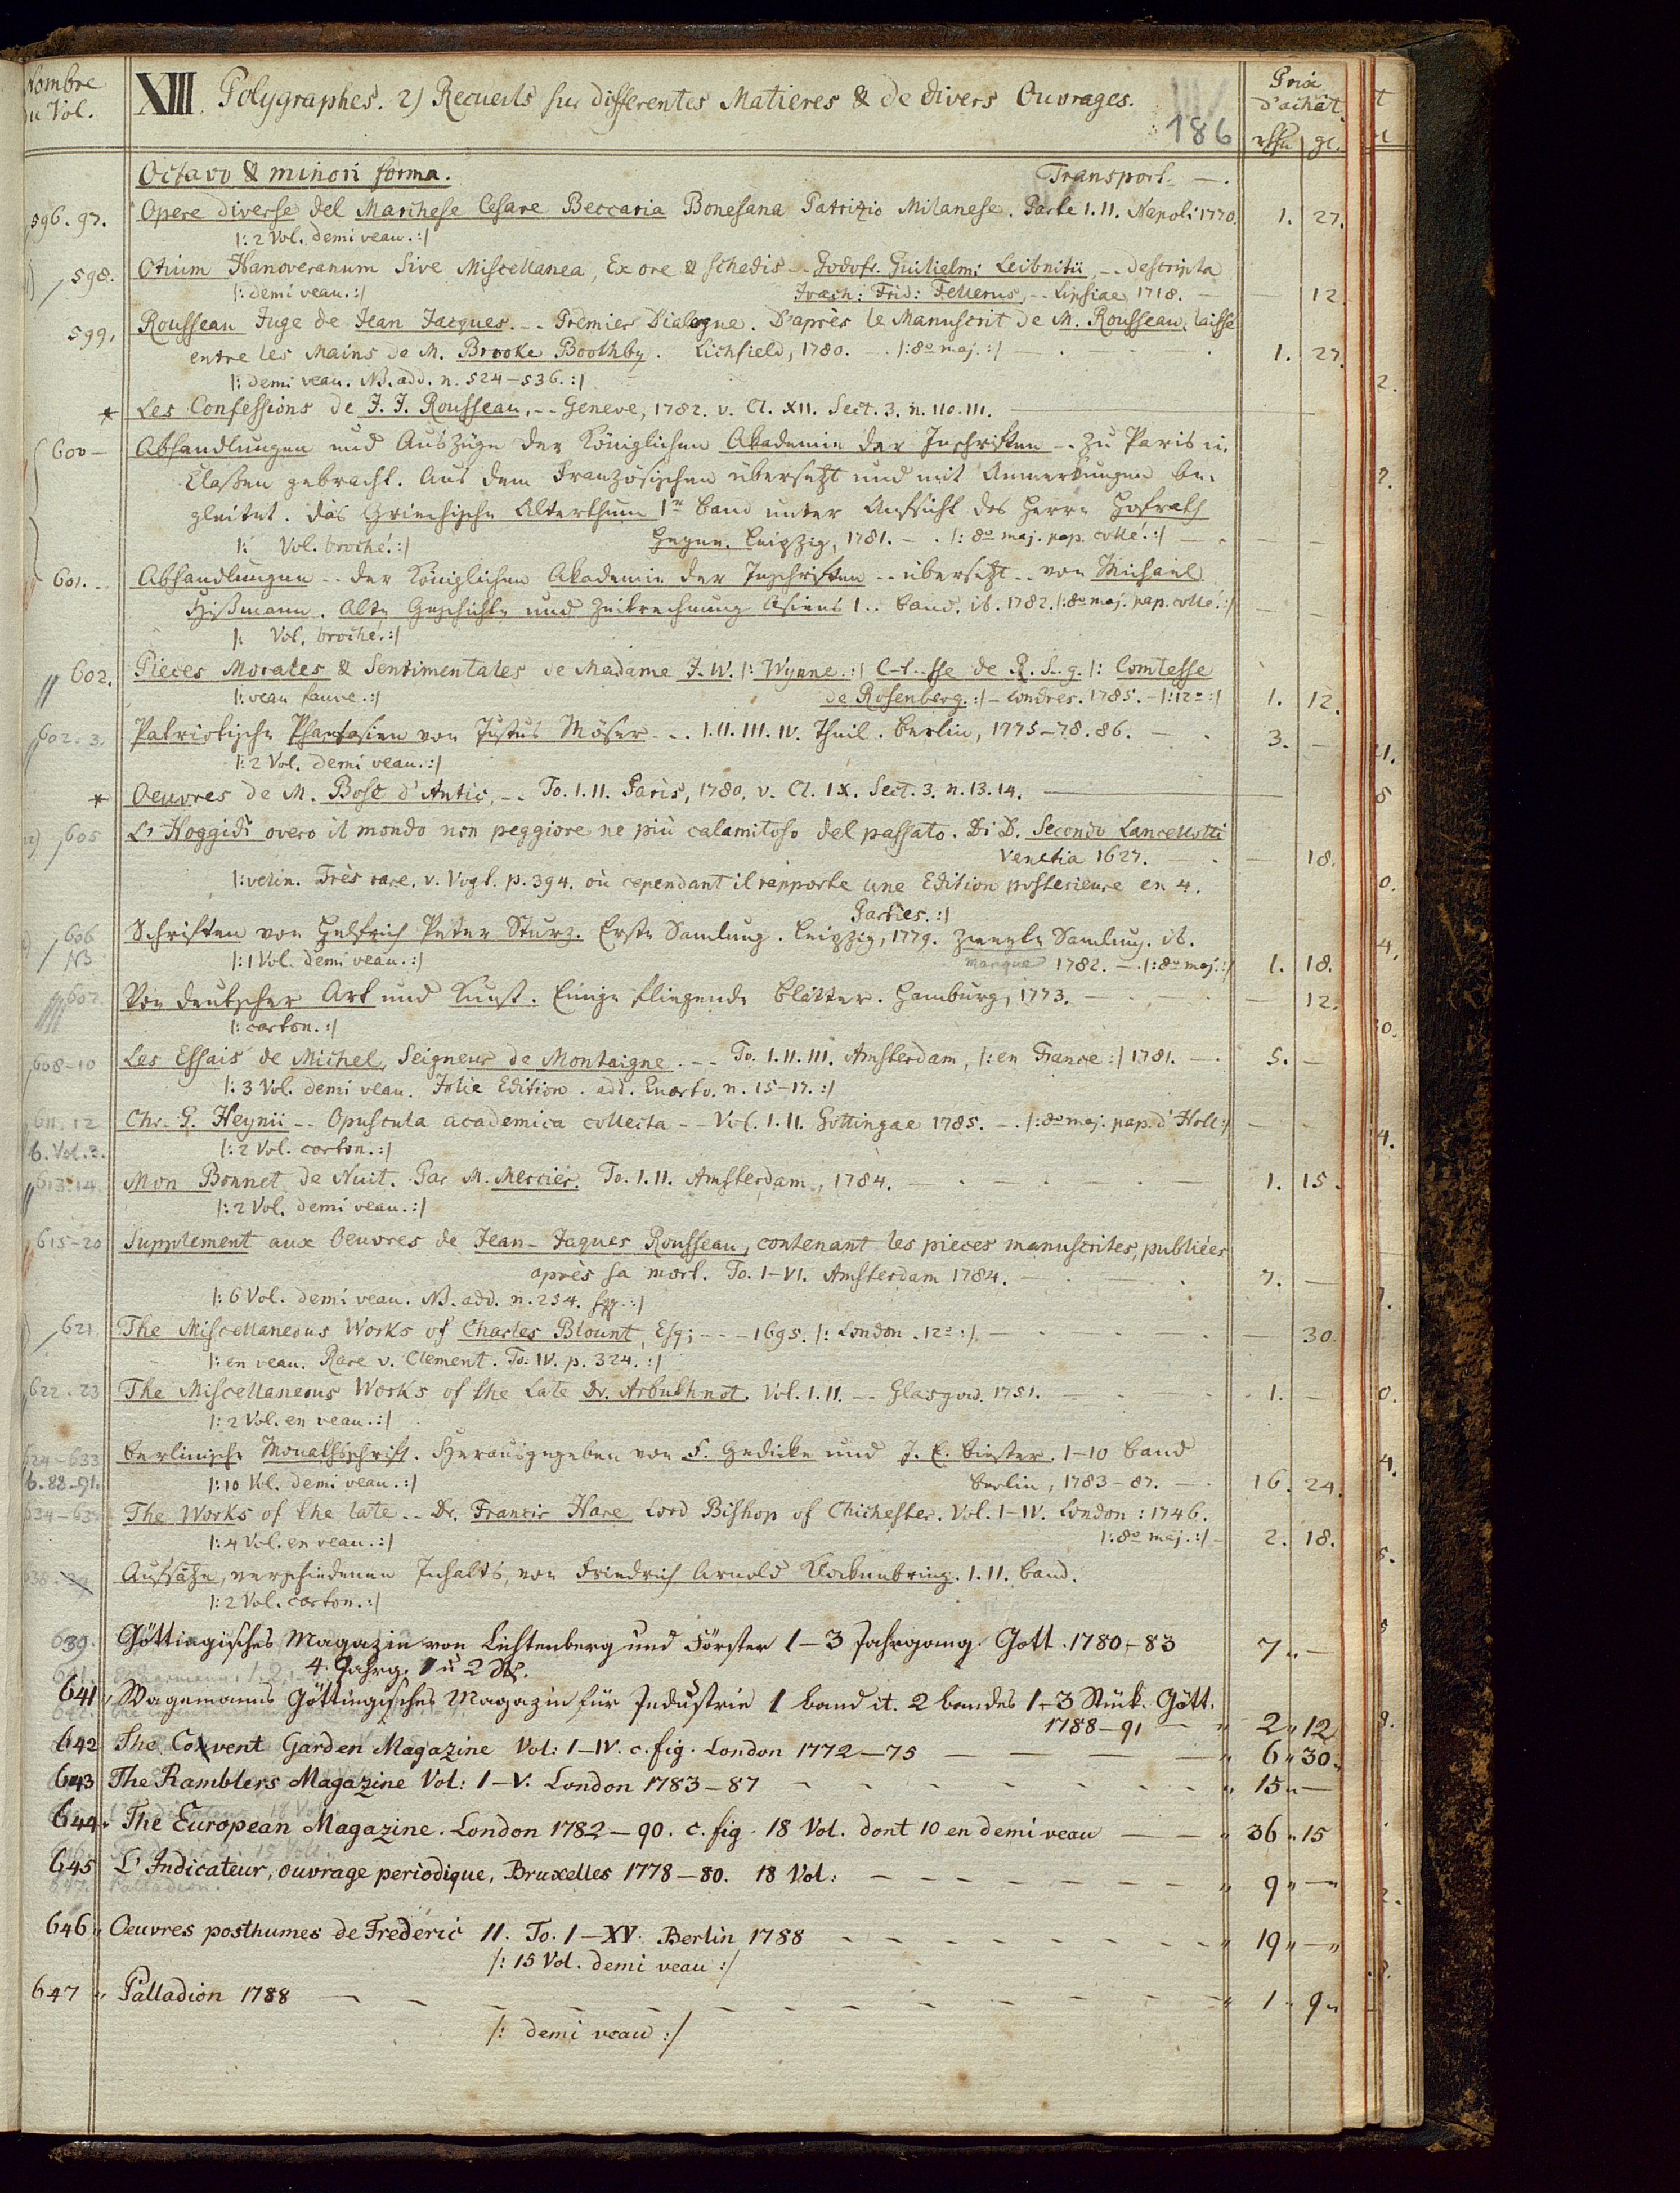 Nombre du Vol.
XIII. Polygraphes. 2) Recueils sur differentes Matieres & de divers Ouvrages.
186
Prix d'achât.
gr.
Octavo & minori forma. Transport. —.
596. 97. Opere diverse del Marchese Cesare Beccaria Bonesana Patrizio Milanese. Parte I. II. Napoli 1770. 1. 27.
|: 2 Vol. demi veau. :|
598. Otium Hanoveranum sive Miscellanea, Ex ore & schedis -- Godofr. Guilielmi Leibnitii, -- descripta
|: demi veau. :| Joach: Frid: Fellerus, -- Lipsiae 1718. — — 12.
599. Rousseau Juge de Jean Jacques. -- Premier Dialogue. D'après le Manuscrit de M. Rousseau, laisse
entre les Mains de M. Brooke Boothby. Lichfield, 1780. —. |: 8o maj. :| — . — . 1. 27.
|: demi veau. NB. add. n. 524–536. :|
* Les Confessions de J. J. Rousseau, -- Geneve, 1782. v. Cl. XII. Sect. 3. n. 110. 111. —
600 — Abhandlungen und Auszüge der Königlichen Akademie der Inschriften -- zu Paris in
Classen gebracht. Aus dem Französischen übersetzt und mit Anmerkungen be-
gleitet. Das Griechische Alterthum 1r Band unter Aufsicht des Herrn Hofrath
|: Vol. broché. :| Heyne. Leipzig, 1781. — . |: 8o maj. pap. collé. :| — . — —
601. -- Abhandlungen -- der Königlichen Akademie der Inschriften -- übersetzt -- von Michael
Hißmann. Alte Geschichte und Zeitrechnung Asiens 1.. Band. ib. 1782. |: 8o maj. pap. collé. :| — —
|: Vol. broché. :|
602. Pieces Morales & Sentimentales de Madame J. W. |: Wynne. :| C-t--sse de R. S--g. |: Comtesse
|: veau fauve. :| de Rosenberg. :| — Londres. 1785. — |: 12o :| 1. 12.
602. 3. Patriotische Phantasien von Justus Möser -- I. II. III. IV. Theil. Berlin, 1775–78. 86. — . 3. —
|: 2 Vol. demi veau. :|
* Oeuvres de M. Bosc d'Antic, -- To. I. II. Paris, 1780. v. Cl. IX. Sect. 3. n. 13. 14. —
605 L'Hoggidi overo il mondo non peggiore ne più calamitoso del passato. Di D. Secondo Lancellotti
Venetia 1627. — . — 18.
|: velin. Très rare. v. Vogt. p. 394. où cependant il rapporte une Edition posterieure en 4.
Parties. :|
606 NB Schriften von Helfrich Peter Sturz. Erste Samlung. Leipzig, 1779. Zweyte Samlung. ib.
|: 1 Vol. demi veau. :| manque 1782. —. |: 8o maj. :| 1. 18.
607. Von deutscher Art und Kunst. Einige fliegende Blätter. Hamburg, 1773. — . — . — 12.
|: carton. :|
608–10 Les Essais de Michel, Seigneur de Montaigne. -- To. I. II. III. Amsterdam, |: en France :| 1781. —. 5. —
|: 3 Vol. demi veau. Jolie Edition. add. Quarto. n. 15–17. :|
611. 12 Chr. G. Heynii -- Opuscula academica collecta -- Vol. I. II. Gottingae 1785. — . |: 8o maj. pap. d'Holl :| — —
6. Vol. 3. |: 2 Vol. carton. :|
613. 14. Mon Bonnet de Nuit. Par M. Mercier. To. I. II. Amsterdam, 1784. — . — . — . — 1. 15.
|: 2 Vol. demi veau. :|
615–20 Supplement aux Oeuvres de Jean-Jaques Rousseau, contenant les pieces manuscrites, publiées
après sa mort. To. I–VI. Amsterdam 1784. — . — . 7. —
|: 6 Vol. demi veau. NB. add. n. 254. sqq. :|
621. The Miscellaneous Works of Charles Blount, Esq; -- – 1695. |: London. 12o :|. — . — . — 30.
|: en veau. Rare v. Clement. To. IV. p. 324. :|
622. 23 The Miscellaneous Works of the Late Dr. Arbuthnot. Vol. I. II. -- Glasgow. 1751. — . 1. —
|: 2 Vol. en veau. :|
624–633 Berlinische Monathsschrift. Herausgegeben von F. Gedicke und J. E. Biester. 1–10 Band
6. 88–91. |: 10 Vol. demi veau. :| Berlin, 1783–87. —. 16. 24.
634–63 The Works of the late -- Dr. Francis Hare, Lord Bishop of Chichester. Vol. I–IV. London: 1746.
|: 4 Vol. en veau. :| |: 8o maj. :| — 2. 18.
638. Aufsätze, verschiedenen Inhalts, von Friedrich Arnold Klockenbring. I. II. Band.
|: 2 Vol. carton. :|
639. Göttingisches Magazin von Lichtenberg und Förster 1–3 Jahrgang. Gott. 1780–83 7 „ —
4. Jahrg. 1 u 2 St.
641 „ Wagemanns Göttingisches Magazin für Industrie 1 Band it. 2 Bandes 1–3 Stük. Gött.
1788–91 — „ 2 „ 12
642 The Covent Garden Magazine Vol: I–IV. c. fig. London 1772–75 — — — — „ 6 „ 30.
643 The Ramblers Magazine Vol: I–V. London 1783–87 - - - - - - „ 15 „ —
644 „ The European Magazine. London 1782–90. c. fig. 18 Vol. dont 10 en demi veau — — „ 36 „ 15
645 L'Indicateur, ouvrage periodique, Bruxelles 1778–80. 18 Vol: - - - - - - „ 9 „ —
646 „ Oeuvres posthumes de Frederic II. To. I–XV. Berlin 1788 - - - - - - „ 19 „ — „
|: 15 Vol. demi veau :|
647 „ Palladion 1788 — - - - - - - - - - „ 1 „ 9 „
|: demi veau :|